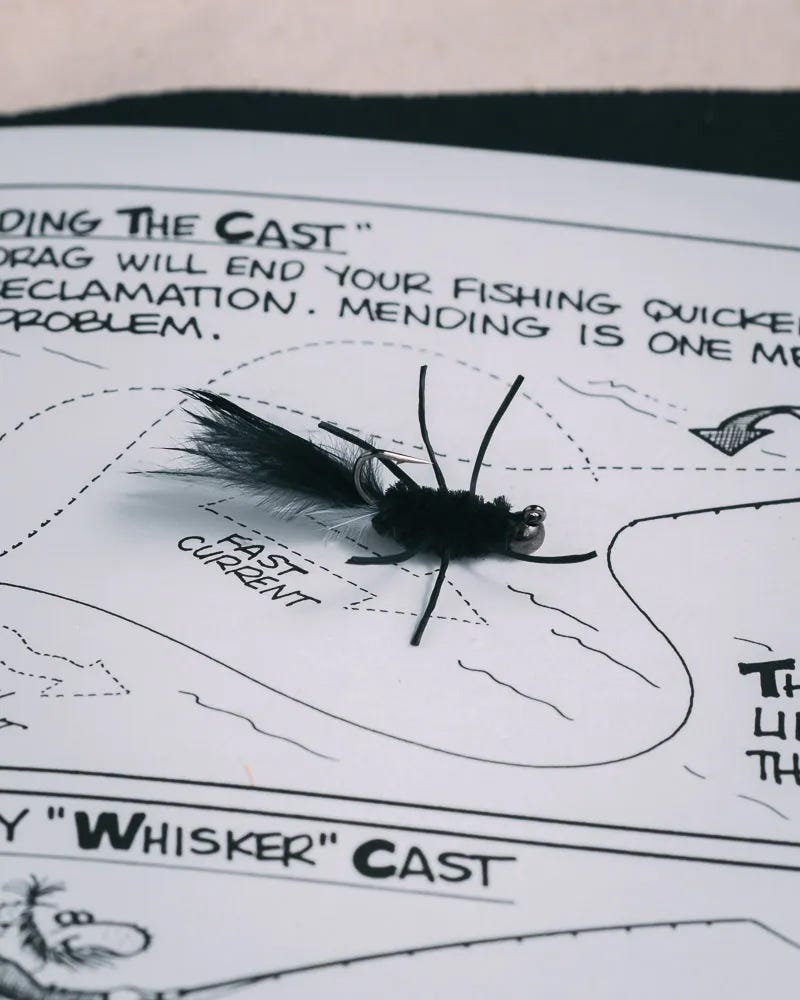 DING THE CAST"
DRAG WILL END YOUR FISHING QUICKE
ECLAMATION. MENDING IS ONE ME
PROBLEM.
FAST
CURRENT
TH
LI
TH
Y "WHISKER" CAST